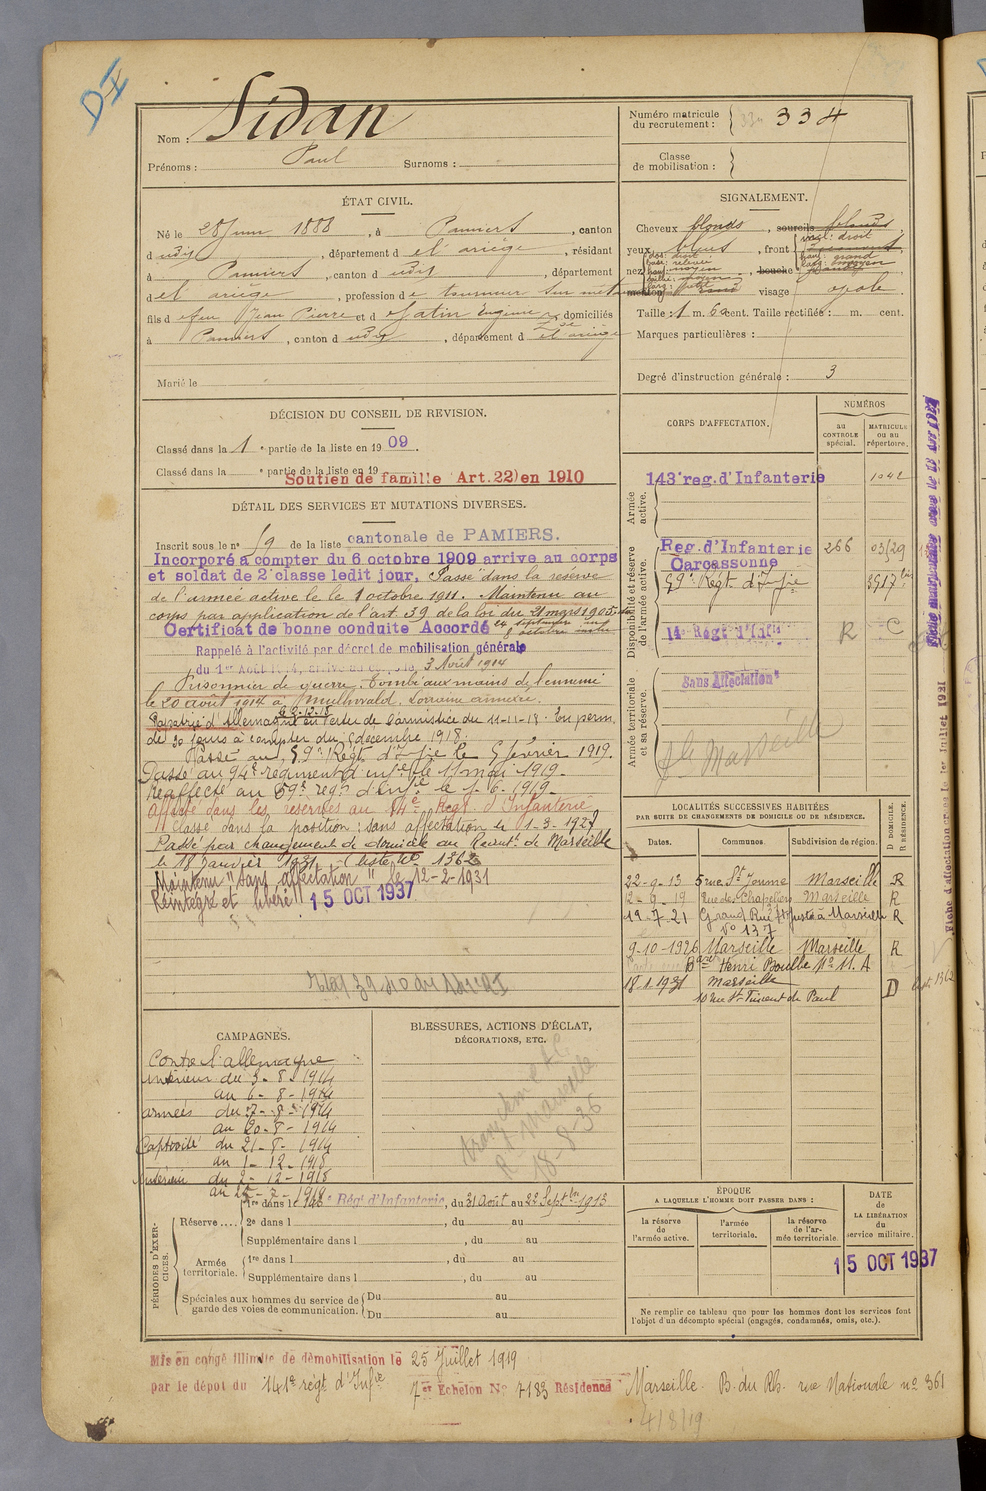 DI
Nom : Sidan
Prénoms : Paul Surnoms :
Numéro matricule du recrutement : 334
Classe de mobilisation :
ÉTAT CIVIL.
Né le 28 Juin 1888, à Pamiers, canton
d udit, département d e l'ariège, résidant
à Pamiers, canton d udit, département
d e l'ariège, profession de tourneur sur métaux
fils d e feu Jean Pierre et d e Eugénie domiciliés
à Pamiers, canton d udit, département d e l'ariège
Marié le
SIGNALEMENT.
Cheveux blonds, sourcils blonds
yeux bleus, front
vert: droit
haut: grand
larg: moyen
nez
dos: droit
base: relevée
haut: moyen
saillie: moyen
larg: petite
, bouche
menton visage ovale
Taille : 1 m. 60 cent. Taille rectifiée : m. cent.
Marques particulières :
Degré d'instruction générale : 3
DÉCISION DU CONSEIL DE REVISION.
Classé dans la 1e partie de la liste en 1909.
Classé dans la e partie de la liste en 19
Soutien de famille (Art. 22) en 1910
DÉTAIL DES SERVICES ET MUTATIONS DIVERSES.
Inscrit sous le n° 59 de la liste cantonale de PAMIERS.
Incorporé à compter du 6 octobre 1909 arrive au corps
et soldat de 2e classe ledit jour, Passé dans la réserve
de l'armée active le 1 octobre 1911. Maintenu au
corps par application de l'art. 39 de la loi du 21 mars 1905
Certificat de bonne conduite Accordé
Rappelé à l'activité par décret de mobilisation générale
du 1er Août 1914, arrivé au corps le 3 Août 1914
Prisonnier de guerre, tombé aux mains de l'ennemi
le 20 août 1914 à Mulhwald, Lorraine annexée.
6-12-18
Rapatrié d'Allemagne en vertu de l'armistice du 11-11-18. En perm.
de 30 jours à compter du 6 décembre 1918.
Passé au 59e Régt. d'Infie le 5 février 1919.
Passé au 94e régiment d'infie le 11 mai 1919.
Réaffecté au 59e regt d'infie le 1-6-1919.
Affecté dans les réserves au 14e Régt. d'Infanterie
Classé dans la position : sans affectation le 1-3-1927
Passé par changement de domicile au Recrutt de Marseille
le 18 janvier 1931 (liste No 1362
Maintenu "sans affectation" le 12-2-1931
Réintégré et libéré 15 OCT 1937
CORPS D'AFFECTATION.
NUMÉROS
au CONTROLE spécial.
MATRICULE ou au répertoire.
Armée active.
143e reg. d'Infanterie 1042
Disponibilité et réserve de l'armée active.
Reg. d'Infanterie 266 03/29
Carcassonne
59e Régt. d'Infie
14e Régt d'Infie R C
Armée territoriale et sa réserve.
"Sans Affectation"
Marseille
Fiche d'affectation créée le 1er Juillet 1921
LOCALITÉS SUCCESSIVES HABITÉES
PAR SUITE DE CHANGEMENTS DE DOMICILE OU DE RÉSIDENCE.
D DOMICILE. R RÉSIDENCE.
Dates. Communes. Subdivision de région.
22-9-13 5 rue St Jeaume Marseille R
12-9-19 Rue des Chapeliers Marseille R
19-7-21 Grand Rue Marseille R
No 137
9-10-1926 Marseille Marseille R
Bard Henri Boulle No 11. A
18.1.1931 Marseille D
10 rue St Vincent de Paul
CAMPAGNES.
Contre l'allemagne
intérieur du 3-8-1914
au 6-8-1914
armées du 7-8-1914
au 20-8-1914
Captivité du 21-8-1914
au 1-12-1918
intérieur du 2-12-1918
BLESSURES, ACTIONS D'ÉCLAT,
DÉCORATIONS, ETC.
Marseille
18-8-36
PÉRIODES D'EXERCICES.
Réserve....
1re dans le Régt d'Infanterie, du 31 Août au 22 Septbre 1913
2e dans l , du au
Supplémentaire dans l , du au
Armée territoriale.
1re dans l , du au
Supplémentaire dans l , du au
Spéciales aux hommes du service de garde des voies de communication.
Du au
Du au
ÉPOQUE
A LAQUELLE L'HOMME DOIT PASSER DANS :
la réserve de l'armée active.
l'armée territoriale.
la réserve de l'armée territoriale.
DATE de LA LIBÉRATION du service militaire.
15 OCT 1937
Ne remplir ce tableau que pour les hommes dont les services font
l'objet d'un décompte spécial (engagés, condamnés, omis, etc.).
Mis en congé illimité de démobilisation le 25 Juillet 1919
par le dépot du 141e régt d'Infie 7er Echelon No 7183 Résidence Marseille B. du Rh. rue Nationale no 361
4/8/19